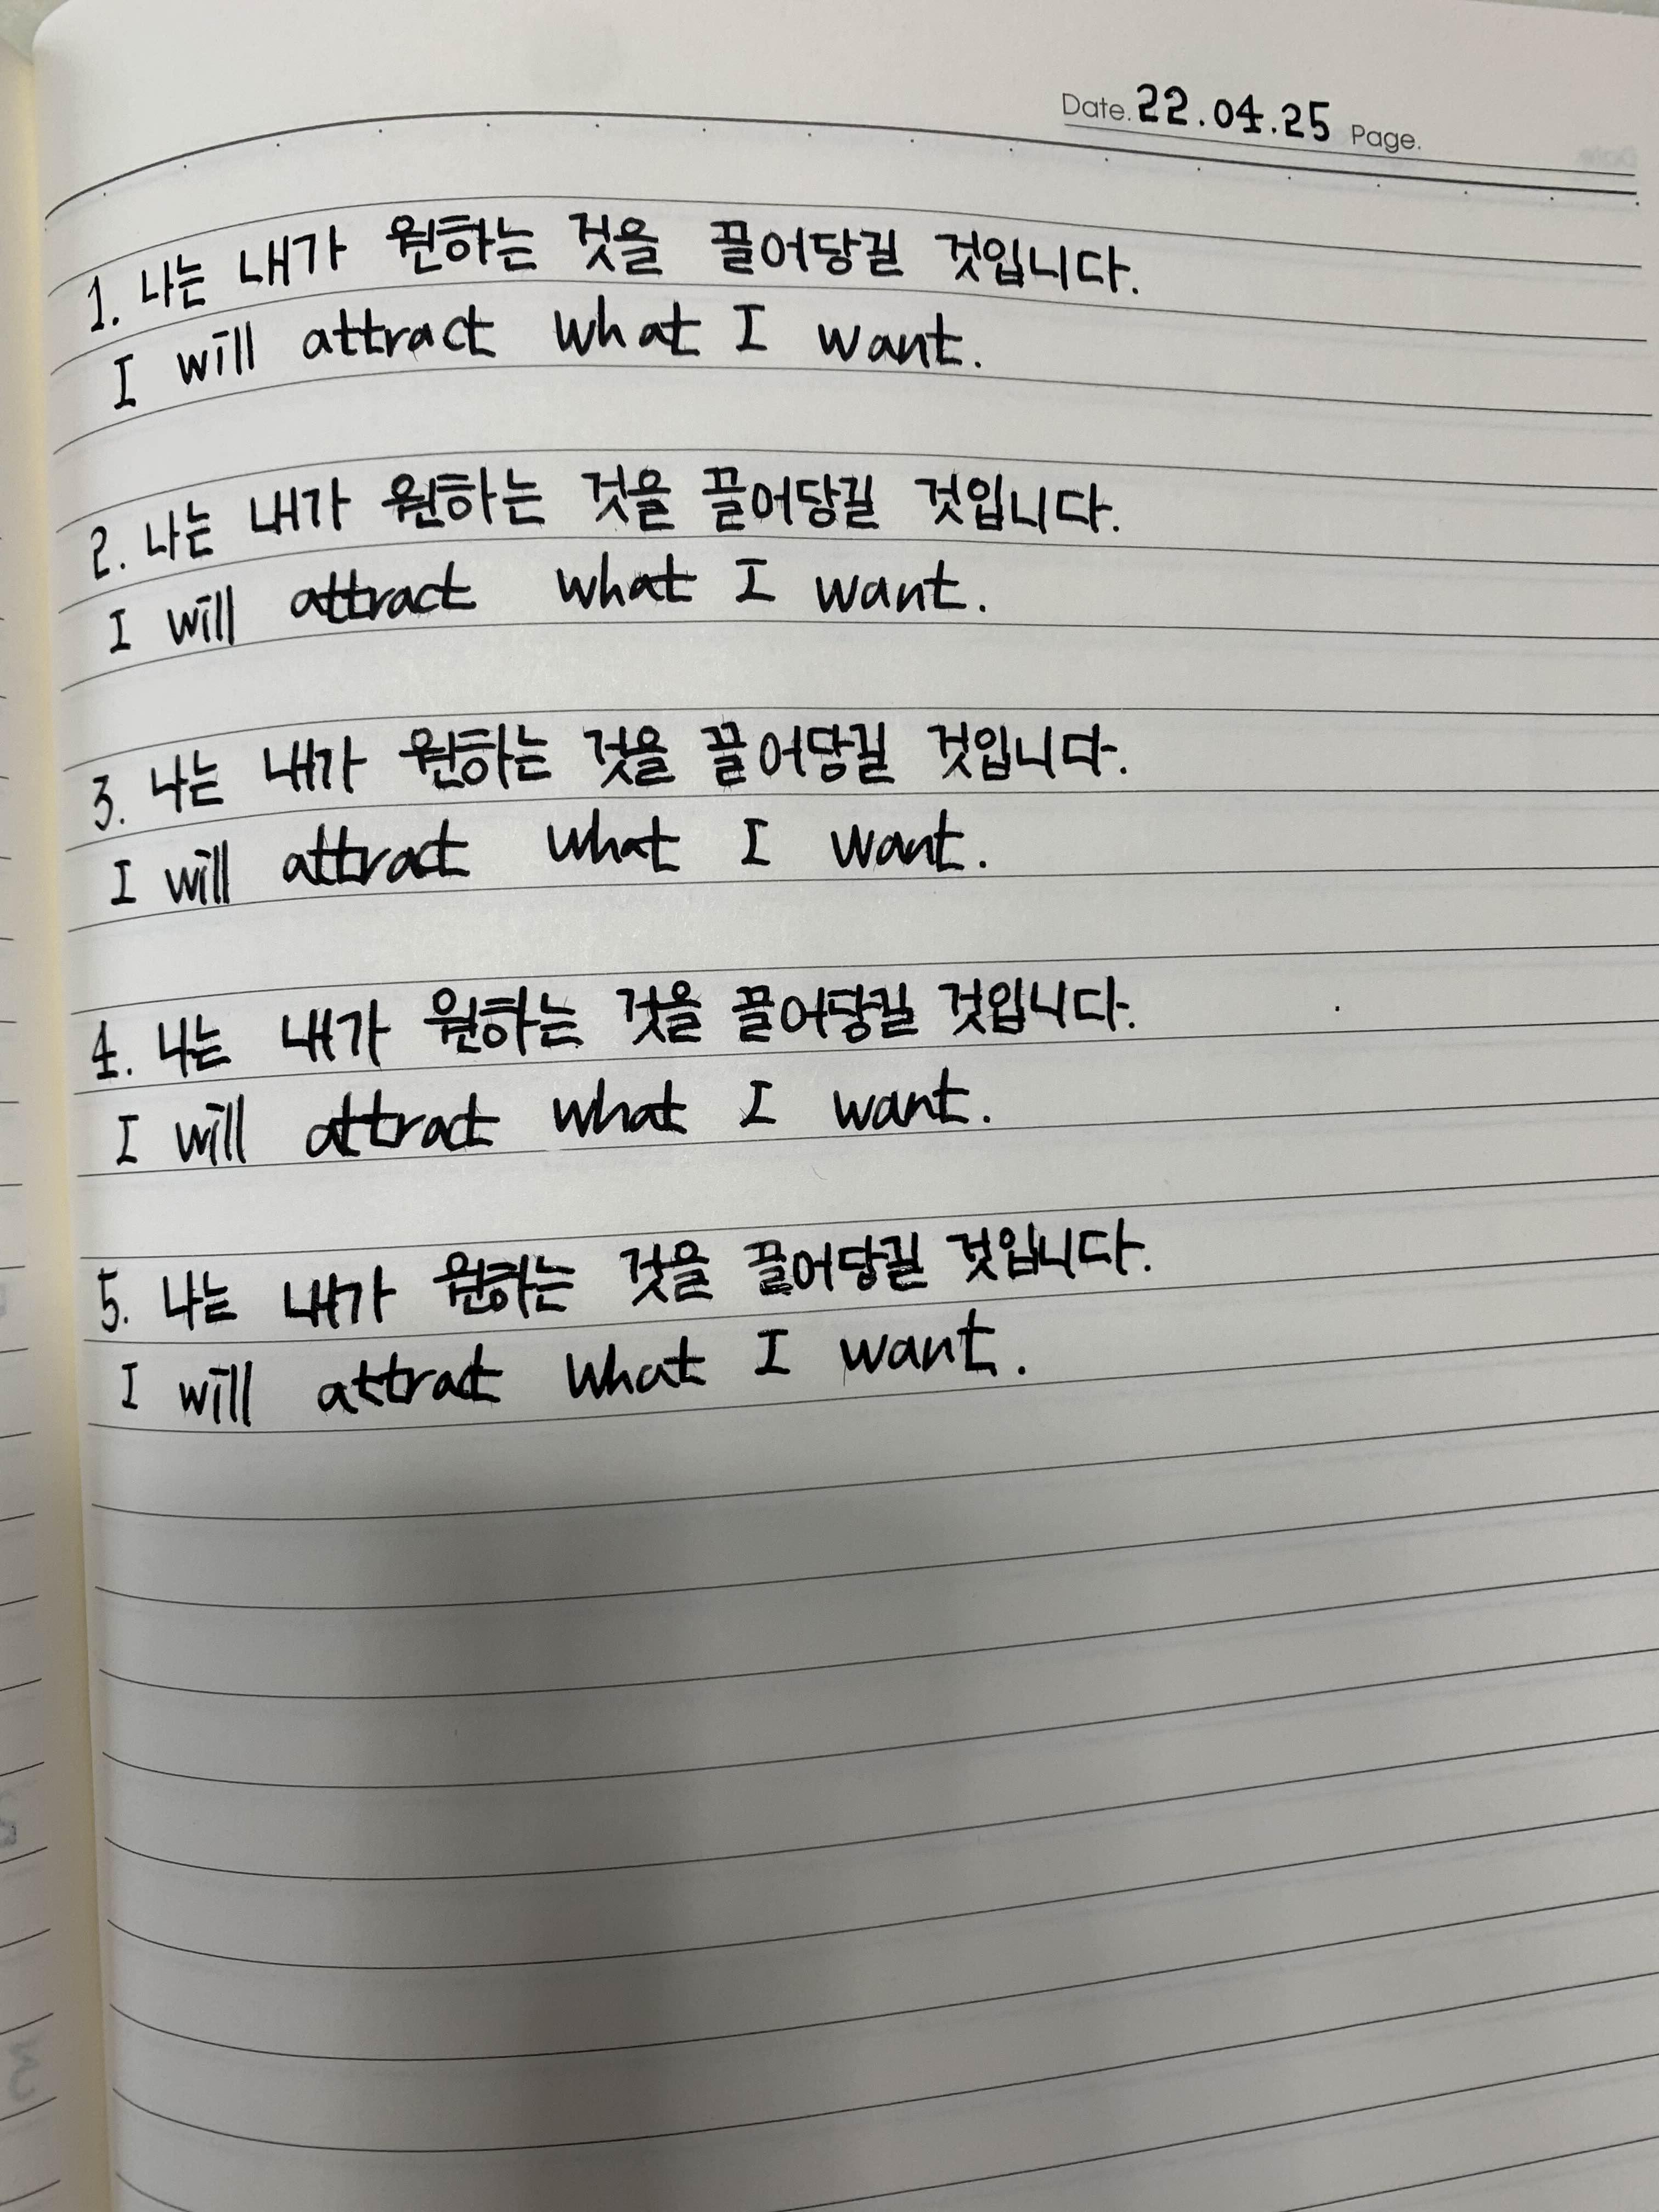 Date. 22.04.25 Page.
1. 나는 내가 원하는 것을 끌어당길 것입니다.
I will attract what I want.
2. 나는 내가 원하는 것을 끌어당길 것입니다.
I will attract what I want.
3. 나는 내가 원하는 것을 끌어당길 것입니다.
I will attract what I want.
4. 나는 내가 원하는 것을 끌어당길 것입니다.
I will attract what I want.
5. 나는 내가 원하는 것을 끌어당길 것입니다.
I will attract what I want.